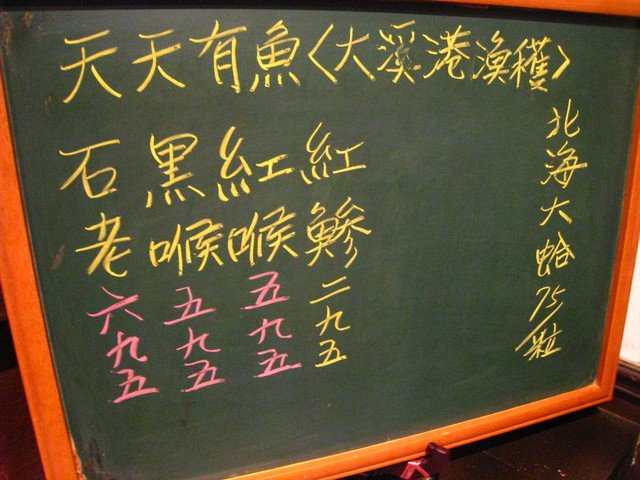 天天有魚〈大溪港漁穫〉
北海大蛤75/粒
紅鰺二九五
紅喉五九五
黑喉五九五
石老六九五